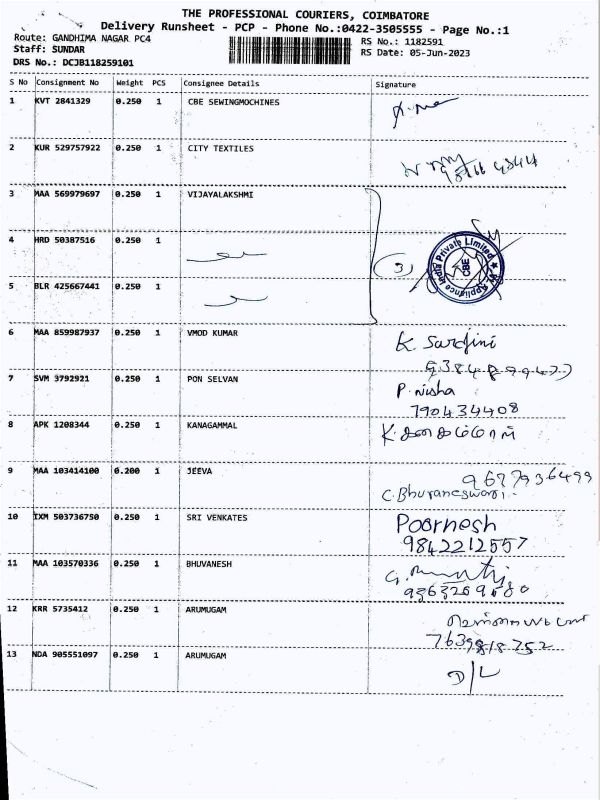 THE PROFESSIONAL COURIERS, COIMBATORE
Delivery Runsheet - PCP - Phone No.:0422-3505555 - Page No.:1
Route: GANDHIMA NAGAR PC4
RS No.: 1182591
Staff: SUNDAR
RS Date: 05-Jun-2023
DRS No.: DCJB118259101
S No Consignment No Weight PCS Consignee Details Signature
1 KVT 2841329 0.250 1 CBE SEWINGMOCHINES
2 KUR 529757922 0.250 1 CITY TEXTILES
3 MAA 569979697 0.250 1 VIJAYALAKSHMI
4 HRD 50387516 0.250 1
(3)
CBE
5 BLR 425667441 0.250 1
6 MAA 859987937 0.250 1 VMOD KUMAR
7 SVM 3792921 0.250 1 PON SELVAN P. Nisha
790434408
8 APK 1208344 0.250 1 KANAGAMMAL
9 MAA 103414100 0.200 1 JEEVA 9677936499
C. Bhuvaneswari.
10 IXM 503736750 0.250 1 SRI VENKATES Poornesh
9842212557
11 MAA 103570336 0.250 1 BHUVANESH
12 KRR 5735412 0.250 1 ARUMUGAM
13 NDA 905551097 0.250 1 ARUMUGAM
D/L